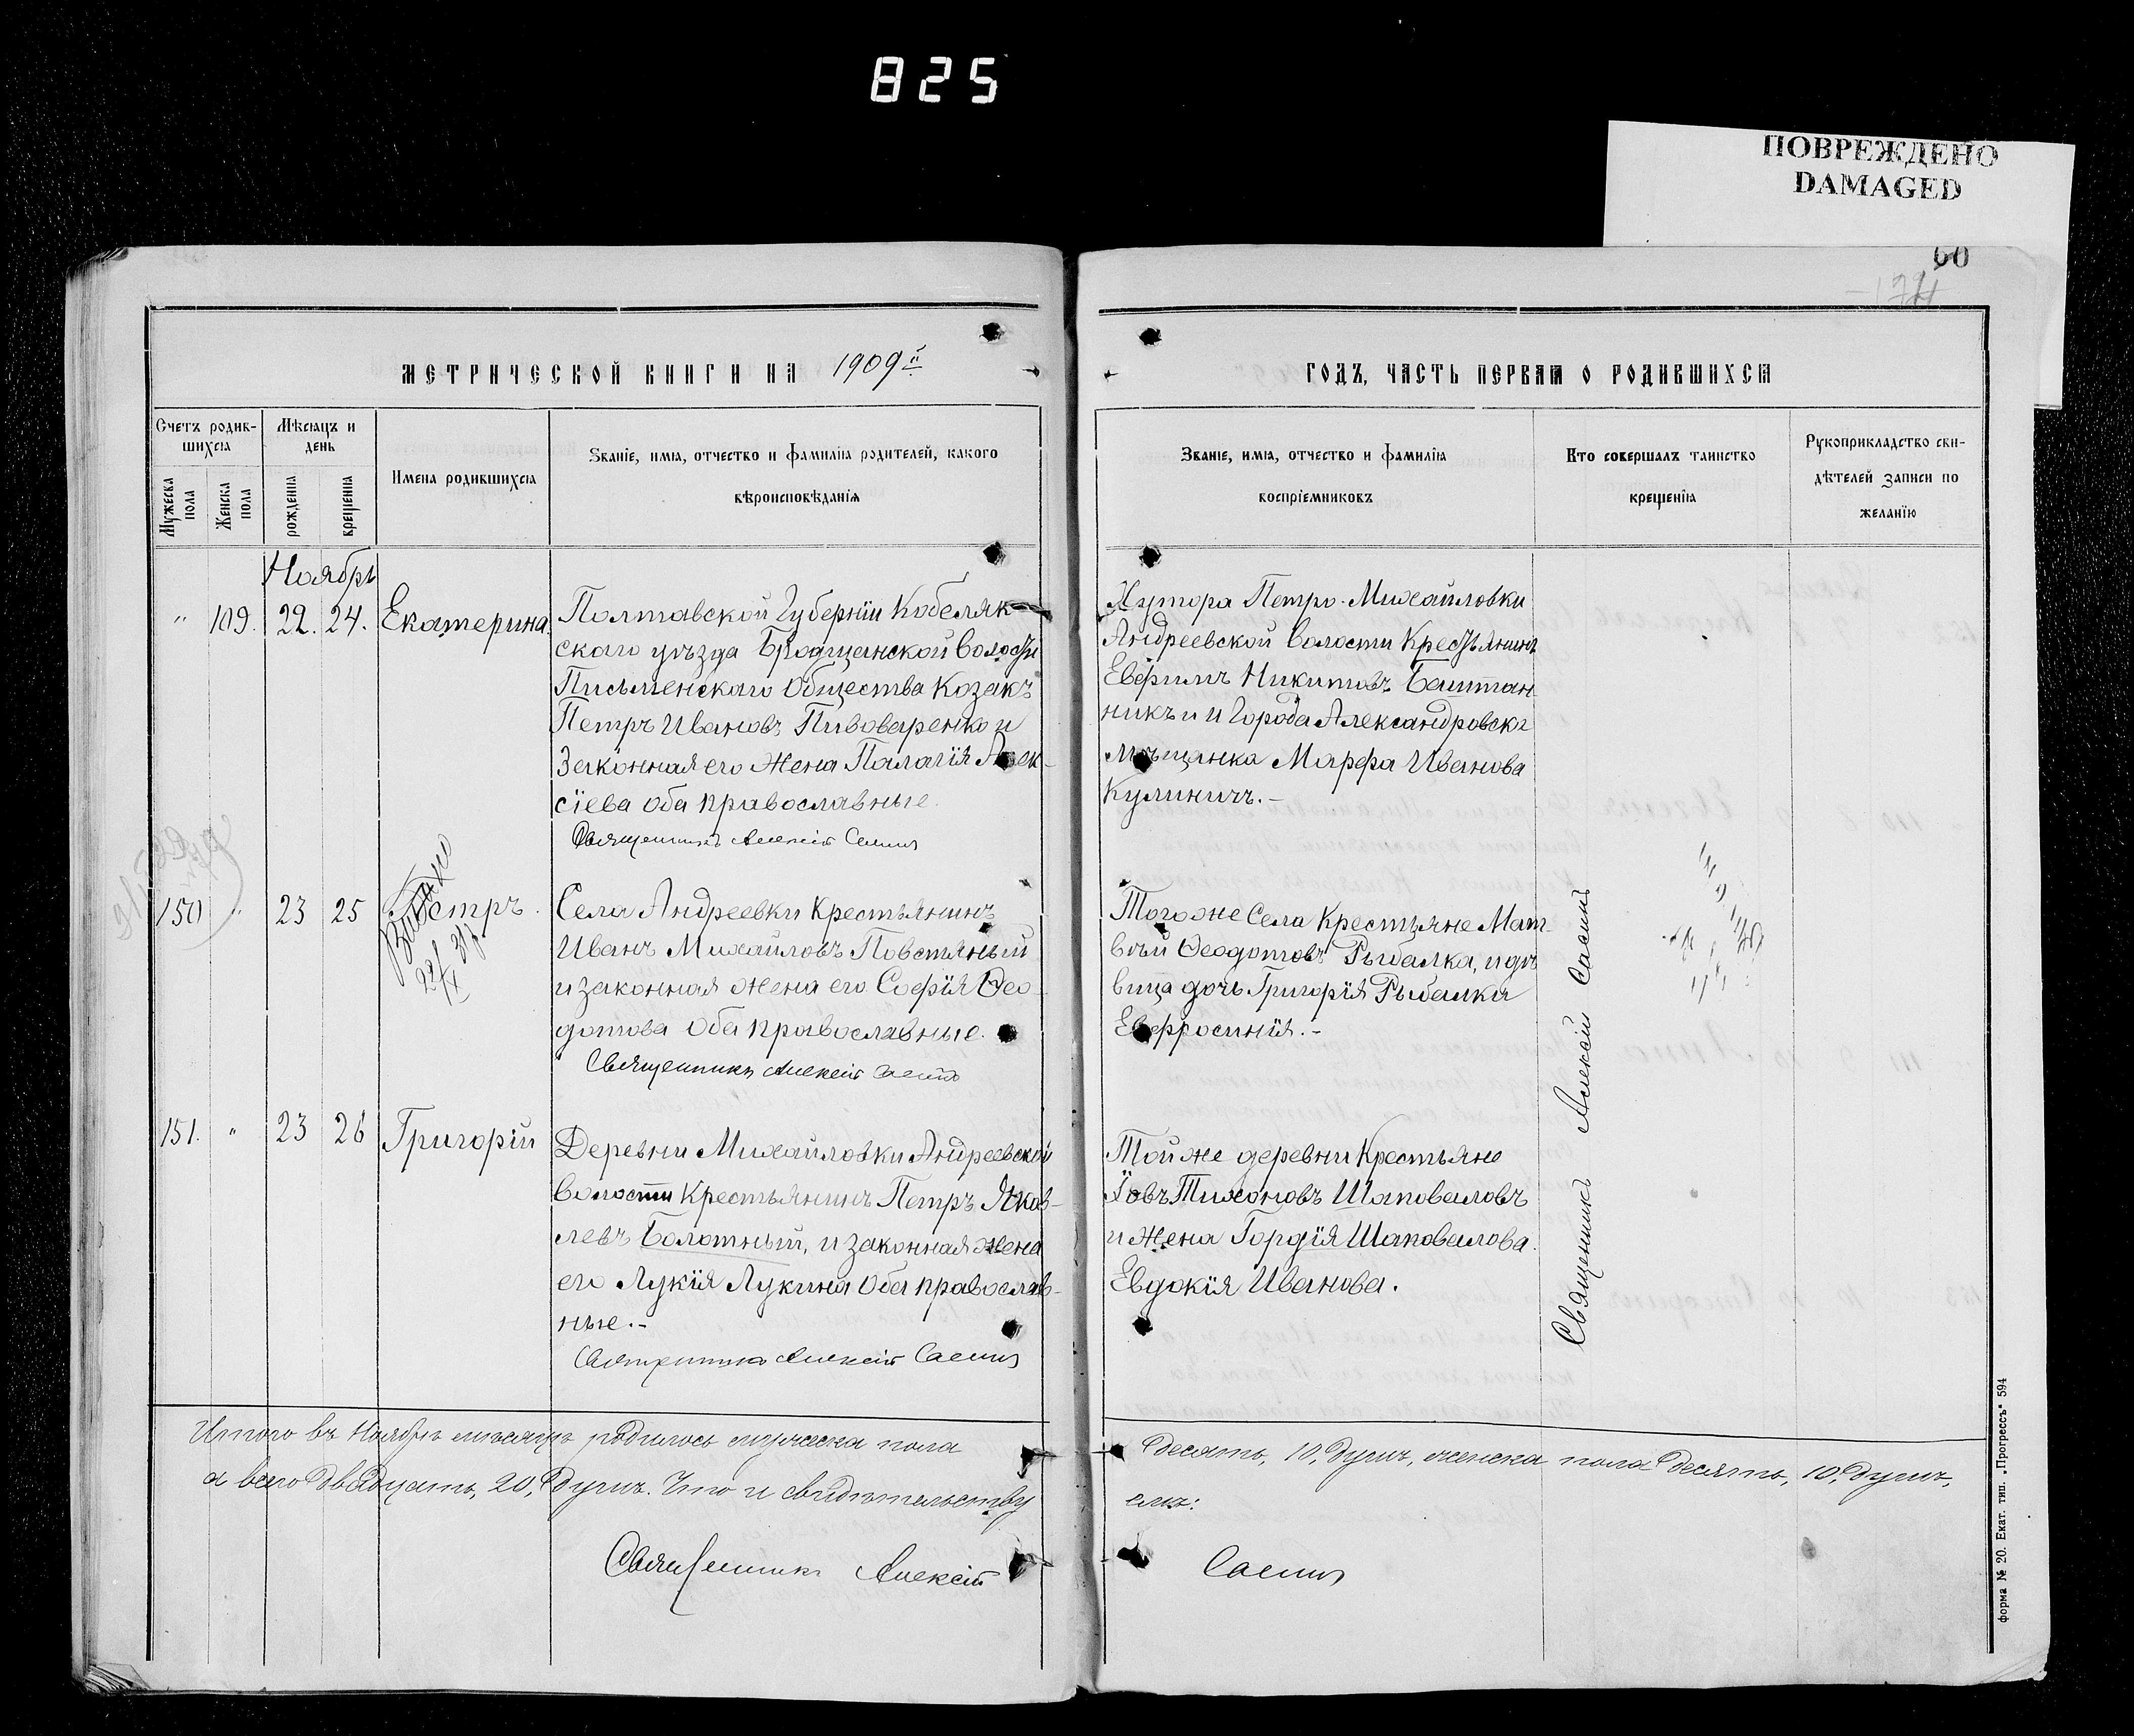 825
ПОВРЕЖДЕНО
DAMAGED
60
МЕТРИЧЕСКОЙ КНИГИ НА 1909й
Счетъ родив-
шихся
Мѣсяцъ и
день
Мужеска
пола
Женска
пола
рожденія
крещенія
Имена родившихся
Званіе, имя, отчество и фамилія родителей, какого
вѣроисповѣданія
Ноябрь
" 109. 22. 24. Екатерина.
Полтавской Губерніи Кобеляк-
скаго уѣзда Бродщанской Волости
Письменскаго Общества Козакъ
Петръ Ивановъ Пивоваренко и
Законная его Жена Палагія Алек-
сіева Оба православные.
Священникъ Алексій Саенко
150 " 23 25 Петръ.
Видано
22/X 31 г.
Села Андреевки Крестьянинъ
Иванъ Михайловъ Повстяный
и законная жена его Софія Ѳео-
дотова Оба православные.
Священникъ Алексій
151. " 23 26 Григорій
Деревни Михайловки Андреевской
Волости Крестьянинъ Петръ Яков-
левъ Болотный, и законная Жена
его Лукія Лукина Оба православ-
ные.-
Священникъ Алексій
Итого въ Ноябрѣ мѣсяцѣ родилось мужеска пола
а всего двадцать, 20, душъ. Что и свидѣтельству
Священникъ Алексій
ГОДЪ, ЧАСТЬ ПЕРВАЯ О РОДИВШИХСЯ
Званіе, имя, отчество и фамилія
воспріемниковъ
Кто совершалъ таинство
крещенія
Рукоприкладство сви-
дѣтелей записи по
желанію
Хутора Петро-Михайловки
Андреевской Волости Крестьянинъ
Евфимъ Никитовъ Баштан
никъ и Города Александровска
Мѣщанка Марфа Иванова
Кулиничъ.-
Тогоже Села Крестьяне Мат-
вѣй Ѳеодотовъ Рыбалка, и дѣ
вица дочь Григорія Рыбалки
Евфросинія.-
Тойже деревни Крестьяне
Іовъ Тихоновъ Шаповаловъ
и Жена Гордія Шаповалова.
Евдокія Иванова.
Священникъ Алексій
десять, 10, душъ, женска пола десять, 10, душъ,
емъ:
форма № 20. Екат. тип. „Прогрессъ" 594